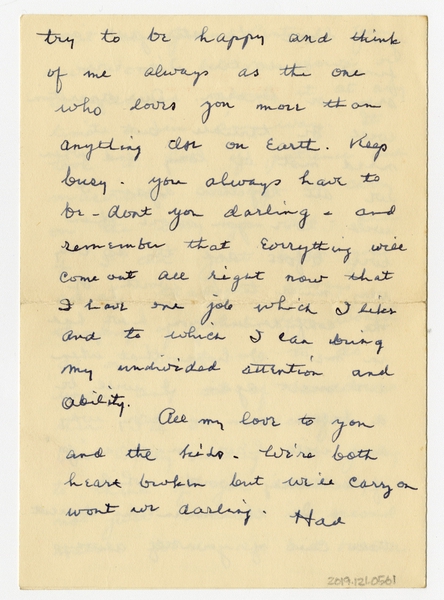 try to be happy and think
of me always as the one
who loves you more than
anything else on Earth. Keep
busy - you always have to
be - dont you darling - and
remember that Everything will
come out all right now that
I have one job which I like
and to which I can bring
my undivided attention and
ability.
All my love to you
and the kids. We're both
heart broken but we'll carry on
wont we darling.
Had
2019.121.0561